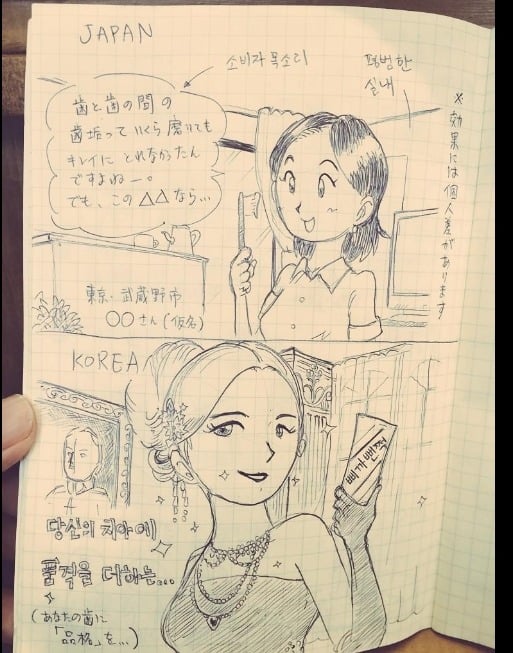 JAPAN
소비자 목소리
평범한
실내
歯と歯の間の
歯垢っていくら磨いても
キレイにとれなかったん
ですよねー。
でも、この△△なら…
※効果には個人差があります
東京・武蔵野市
○○さん(仮名)
KOREA
삐까뻔쩍
당신의 치아에
품격을 더하는...
(あなたの歯に
「品格」を…)